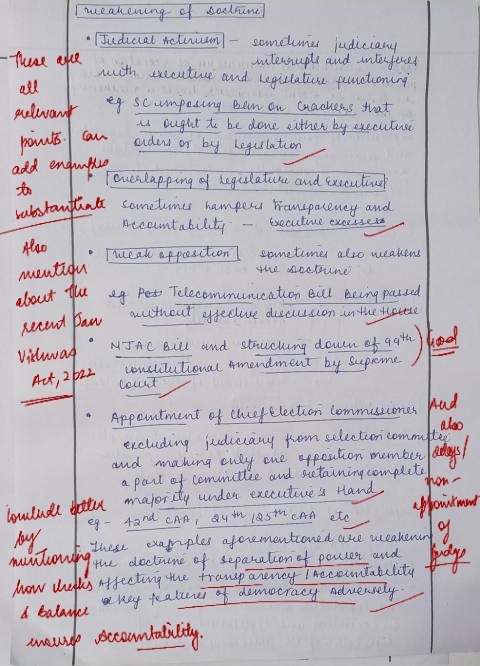 Weakening of Doctrine
• Judicial Activism – sometimes judiciary
interrupts and interferes
with executive and legislature functioning
eg SC imposing Ban on Crackers that
is ought to be done either by executive
orders or by Legislation
• Overlapping of Legislature and Executive
sometimes hampers Transparency and
Accountability – Executive excesses
• Weak opposition sometimes also weakens
the Doctrine
eg Telecommunication Bill Being passed
without effective discussion in the House
• NJAC Bill and strucking down of 99th
constitutional Amendment by Supreme
Court
• Appointment of Chief Election Commissioner
excluding judiciary from selection committee
and making only one opposition member
a part of committee and retaining complete
majority under executive's Hand
eg – 42nd CAA, 24th / 25th CAA etc
These examples aforementioned are weakening
the doctrine of separation of power and
affecting the Transparency / Accountability
key features of democracy Adversely.
These are
all
relevant
points. Can
add examples
to
substantiate
Also
mention
about the
recent Jan
Vishwas
Act, 2022
Conclude better
by
mentioning
how checks
& Balance
ensures Accountability.
Good
And
also
delays/
non-
appointment
of
judges